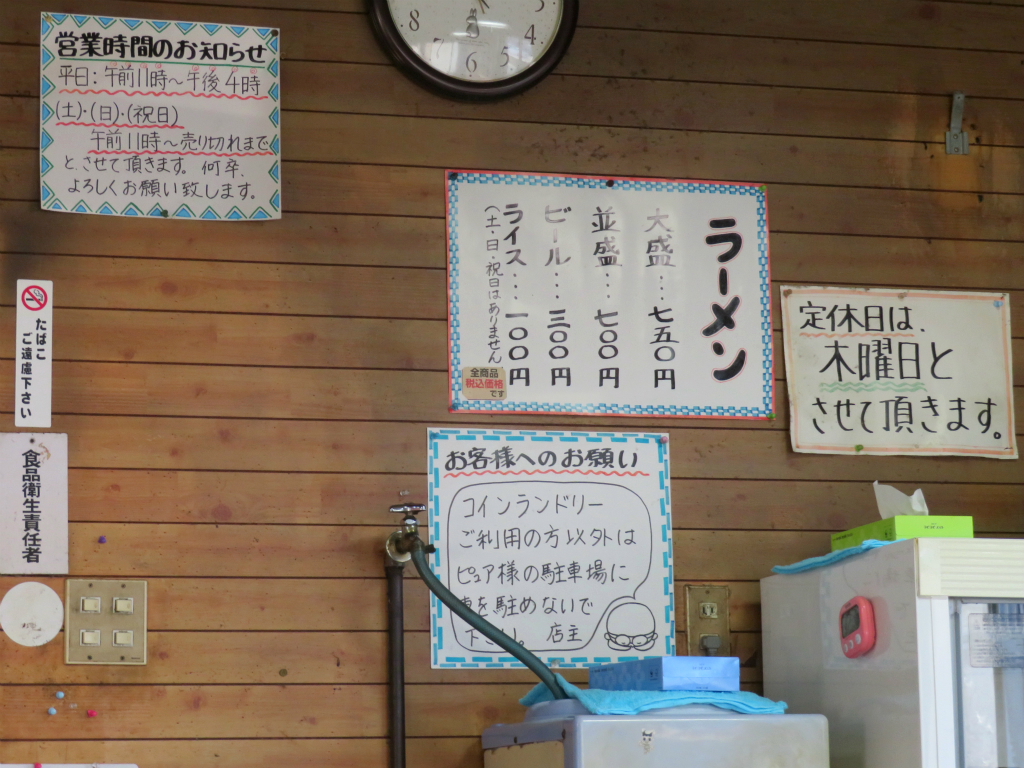 営業時間のお知らせ
平日:午前11時～午後4時
(土)・(日)・(祝日)
午前11時～売り切れまで
とさせて頂きます。何卒、
よろしくお願い致します。
8
7
6
5
4
3
ラーメン
大盛・・・七五〇円
並盛・・・七〇〇円
ビール・・・三〇〇円
ライス・・・一〇〇円
(土・日・祝日はありません)
全商品
税込価格
です
定休日は、
木曜日と
させて頂きます。
たばこ
ご遠慮下さい
食品衛生責任者
お客様へのお願い
コインランドリー
ご利用の方以外は
ピュア様の駐車場に
車を駐めないで
下さい。 店主